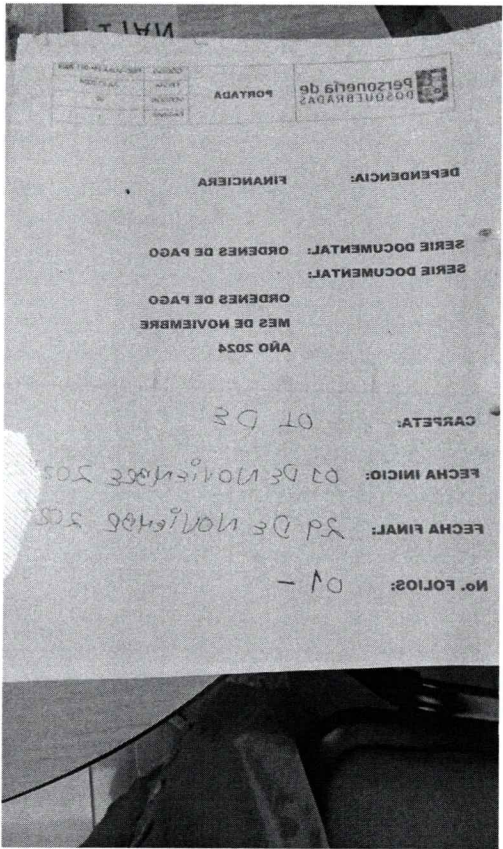 Personería de
DOSQUEBRADAS
PORTADA
CÓDIGO
FECHA
VERSION
PAGINAS
DEPENDENCIA: FINANCIERA
SERIE DOCUMENTAL: ORDENES DE PAGO
SERIE DOCUMENTAL:
ORDENES DE PAGO
MES DE NOVIEMBRE
AÑO 2024
CARPETA: 01 DE
FECHA INICIO: 01 DE NOVIEMBRE
FECHA FINAL: 29 DE NOVIEMBRE
No. FOLIOS: 01 -